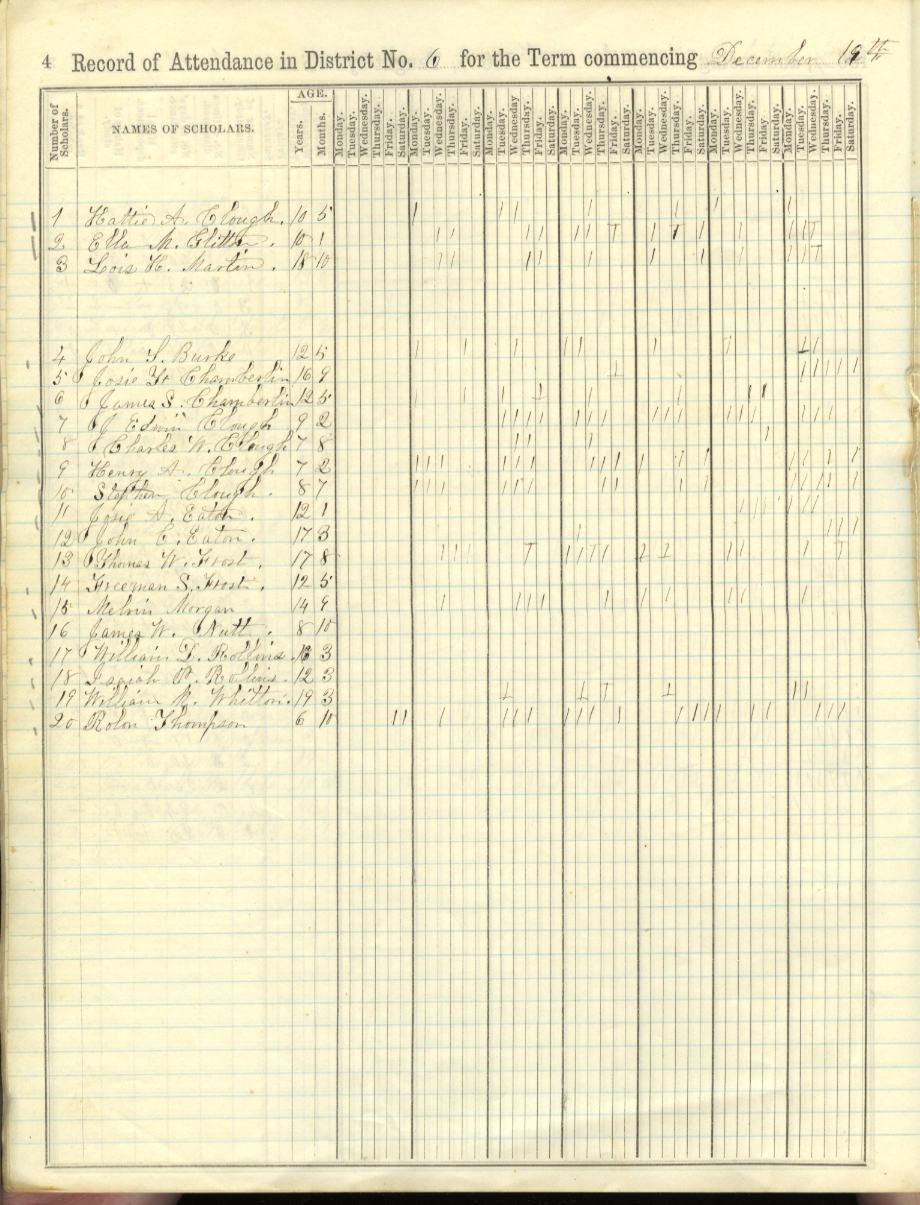 4 Record of Attendance in District No. 6 for the Term commencing December 19th
AGE.
Number of Scholars. NAMES OF SCHOLARS. Years. Months. Monday. Tuesday. Wednesday. Thursday. Friday. Saturday. Monday. Tuesday. Wednesday. Thursday. Friday. Saturday. Monday. Tuesday. Wednesday Thursday. Friday. Saturday. Monday. Tuesday. Wednesday. Thursday. Friday. Saturday. Monday. Tuesday. Wednesday. Thursday. Friday. Saturday. Monday. Tuesday. Wednesday. Thursday. Friday Saturday. Monday. Tuesday. Wednesday. Thursday. Friday. Saturday.
1 Hattie A. Clough. 10 5
2 Ella M. 10 1
3 Lois H. Martin. 18 10
4 John S. Burke 12 5
5 Josie Chamberlin 16 9
6 James S. Chamberlin 12 5
7 J Edwin Clough 9 2
8 Charles W. Clough 7 8
9 Henry A. Clough 7 2
10 Stephen Clough. 8 7
11 Josie A. Eaton. 12 1
12 John C. Eaton. 17 3
13 Thomas W. Frost. 17 8
14 Freeman S. Frost. 12 5
15 Melvin Morgan 14 9
16 James W. Nutt. 8 10
17 William D. Rollins. 3
18 Isaiah Rollins. 12 3
19 William Whitton. 19 3
20 Rolon Thompson 6 10